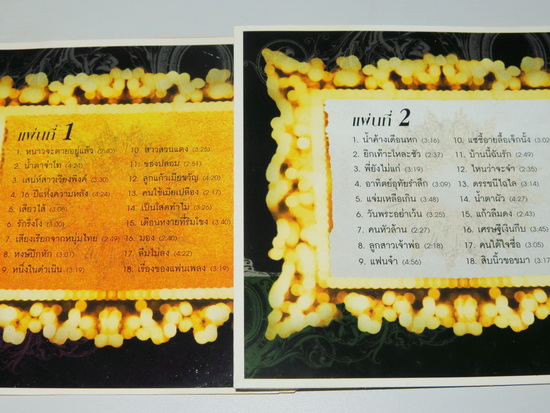 แผ่นที่ 1
1. หนาวจะตายอยู่แล้ว (2:40)
2. น้ำตาจำโท (4:24)
3. เสน่ห์สาวเวียงพิงค์ (2:30)
4. 16 ปีแห่งความหลัง (4:24)
5. เสียวไส้ (3:08)
6. รักริงโง (3:00)
7. เสียงเรียกจากหนุ่มไทย (2:49)
8. หงษ์ปีกหัก (3:07)
9. หนึ่งในดำเนิน (3:19)
10. สาวสวนแตง (3:25)
11. ของปลอม (2:54)
12. ลูกแก้วเมียขวัญ (4:20)
13. คนใช้เมียเปลือง (2:17)
14. เป็นโสดทำไม (2:25)
15. เตือนหงายที่ริมโขง (3:40)
16. มอง (2:40)
17. ลืมไม่ลง (4:22)
18. เรื่องของแฟนเพลง (3:19)
แผ่นที่ 2
1. น้ำค้างเดือนหก (3:16)
2. ยิกเท้าะโหละซัว (2:37)
3. พี่ยังไม่แก่ (3:19)
4. อาทิตย์อุทัยรำลึก (3:09)
5. แจ่มเหลือเกิน (3:06)
6. วันพระอย่าเว้น (3:25)
7. คนหัวล้าน (2:27)
8. ลูกสาวเจ้าพ่อ (2:18)
9. แฟนจ๋า (4:56)
10. แซซี้อ้ายลื้อเจ็กนั้ง (3:02)
11. บ้านนี้ฉันรัก (2:49)
12. ไหนว่าจะจำ (2:35)
13. ดรรชนีไฉไล (3:14)
14. น้ำตาผัว (4:27)
15. แก้วลืมดง (2:43)
16. เศรษฐีเงินกีบ (3:45)
17. คนใต้ใจซื่อ (3:05)
18. สิบนิ้วขอขมา (3:17